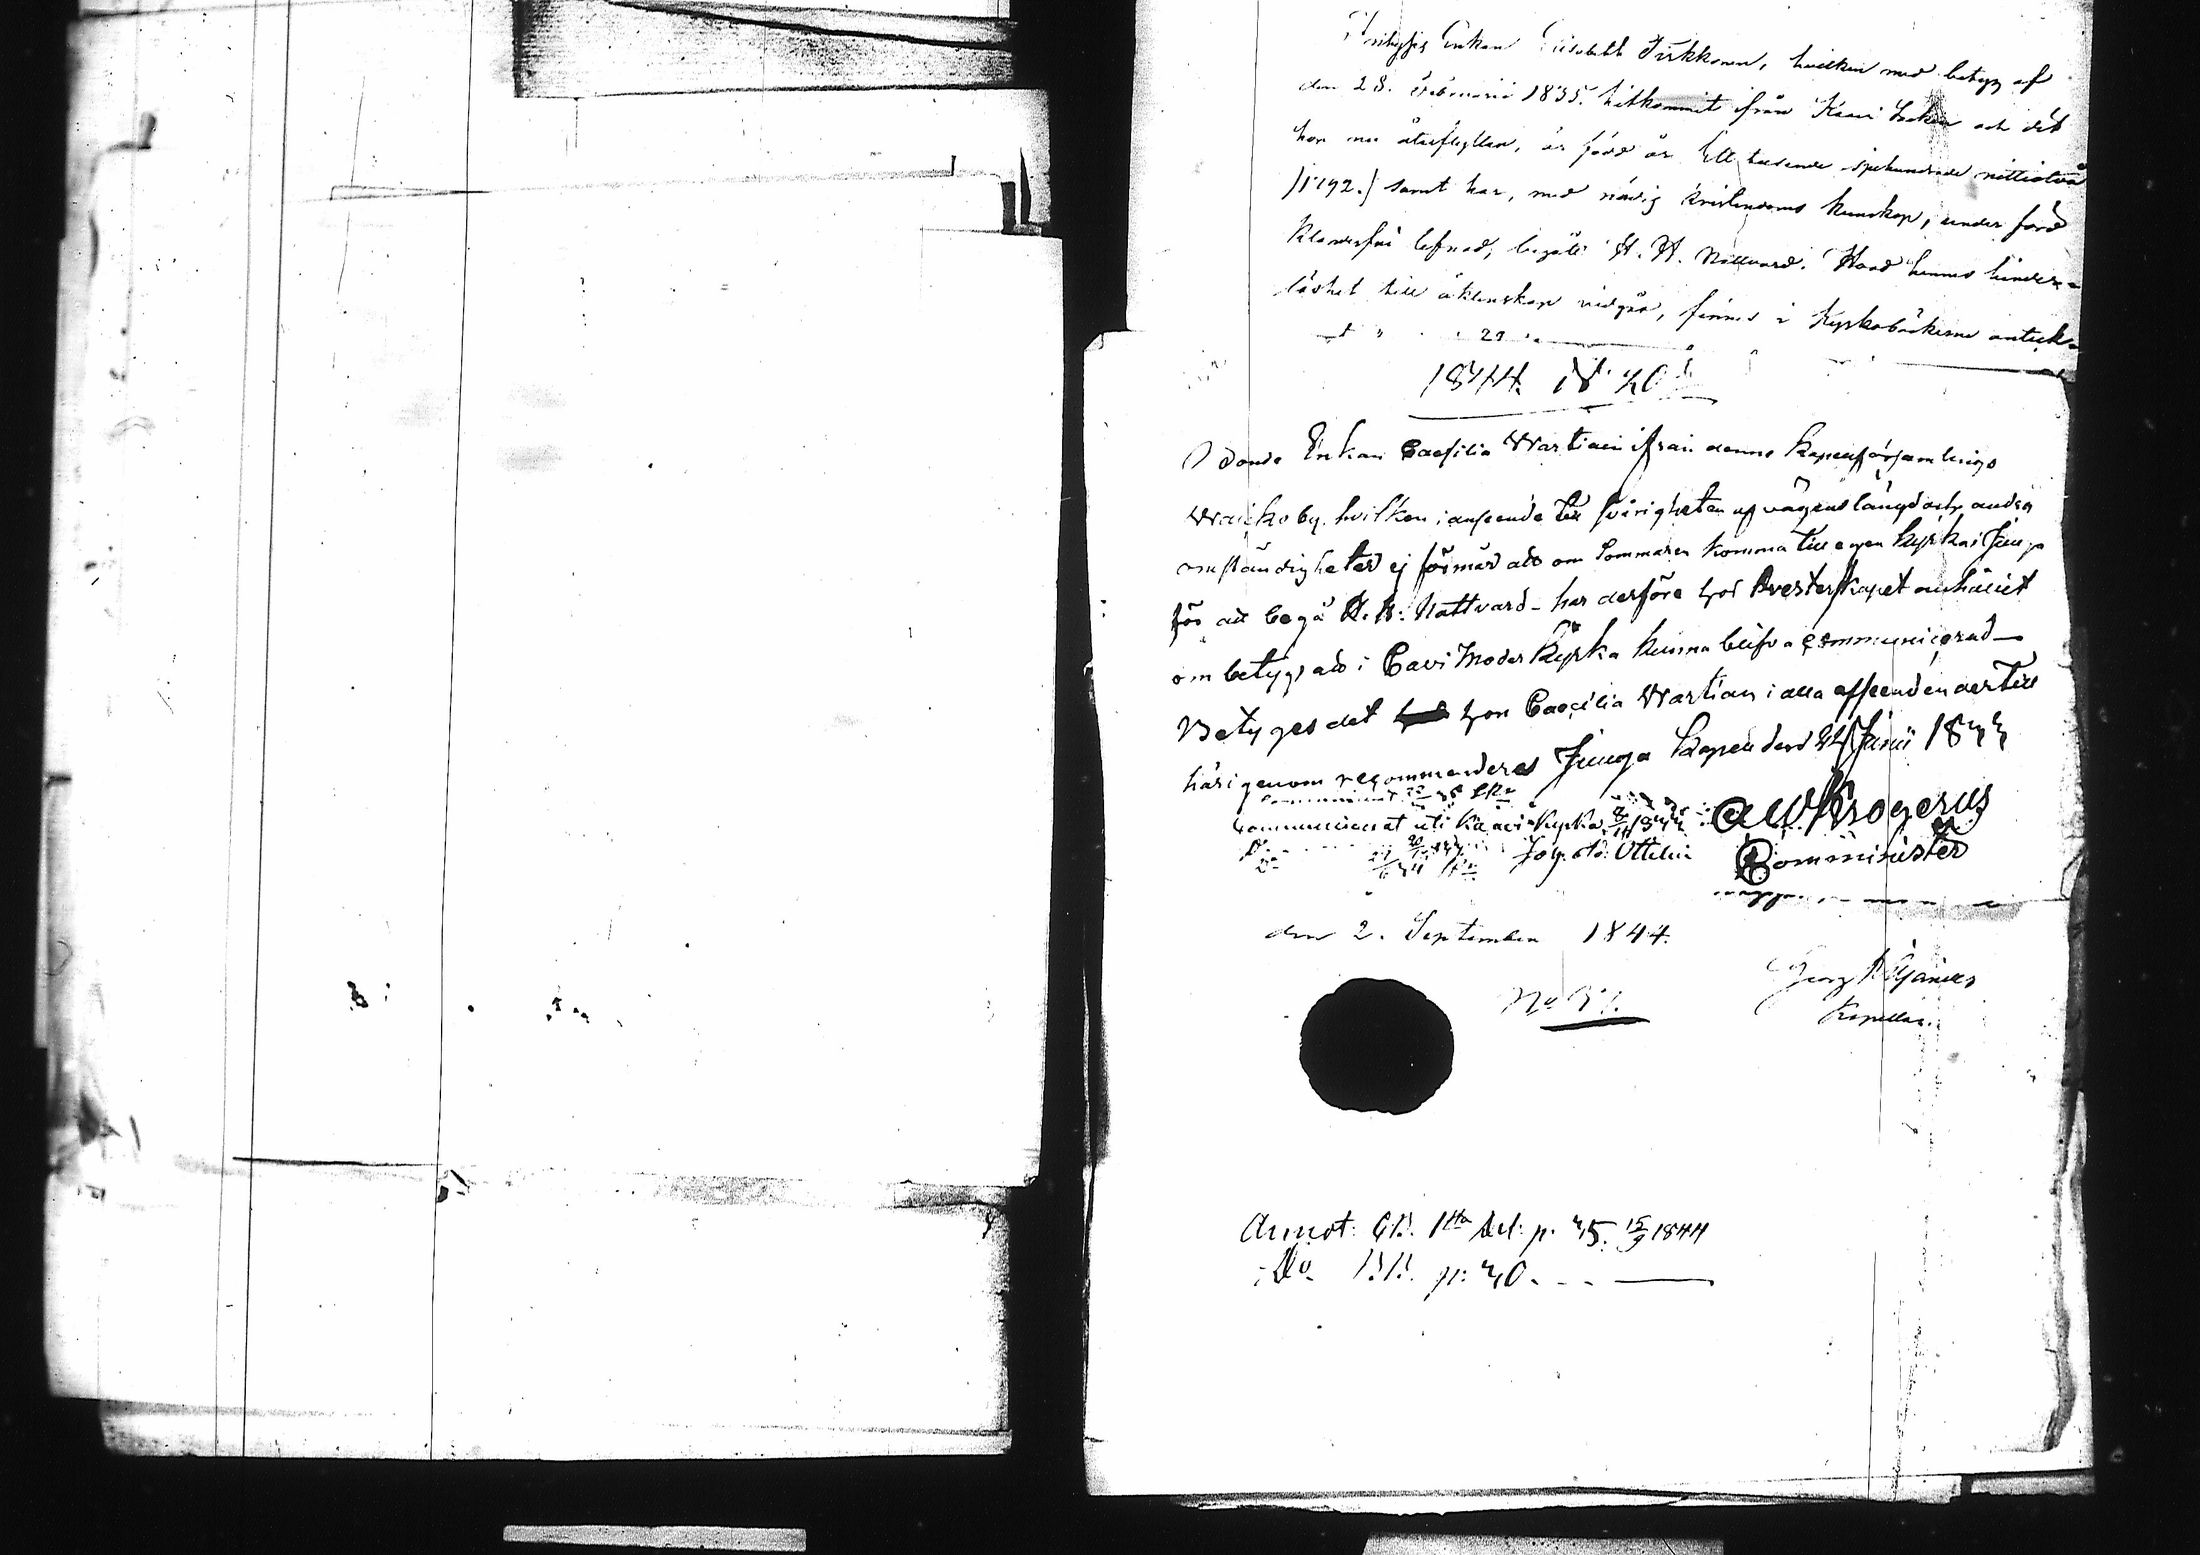 Enkan Elisabeth Tirkkonen, hvilken med betyg af
den 28. Februarii 1835. hitkommit ifrån Kaavi Socken och dit
hon nu återflyttar, är född år Ett tusende sjuhundrade nittiotvå
/1792./ samt har, med nödig kristendoms kunskap, under förd
klanderfri lefnad, begått H. H. Nattvard. Hvad hennes hinders-
löshet till äktenskap vidgår, finnes i Kyrkoböckerne anteck-
29
1844. N 40
Enkan Caecilia Wartiain ifrån denne Kapellförsamlings
by, hvilken i anseende till svårigheten af vägens längd och andra
omständigheter ej förmår att om Sommaren komma till egen Kyrka i Juuga
för att begå H. H. Nattvard - har derföre hos Presterskapet anhållit
om betyg att i Cavi Moder Kyrka kunna blifva communicerad -
Betyges det hon Caecilia Wartian i alla afseenden dertill
härigenom recommenderas Juuga Kapell den 24 Junii 1844
Communicerat uti Kaavi Kyrka 1844 A W Krogerus
Do Joh. Ad. Ottelin Comminister
den 2. September 1844.
Georg
No 37. Kapellan.
Annot: C.B. 1sta Del: p. 45. 15/9 1844
Do B.B. p: 40. - - —